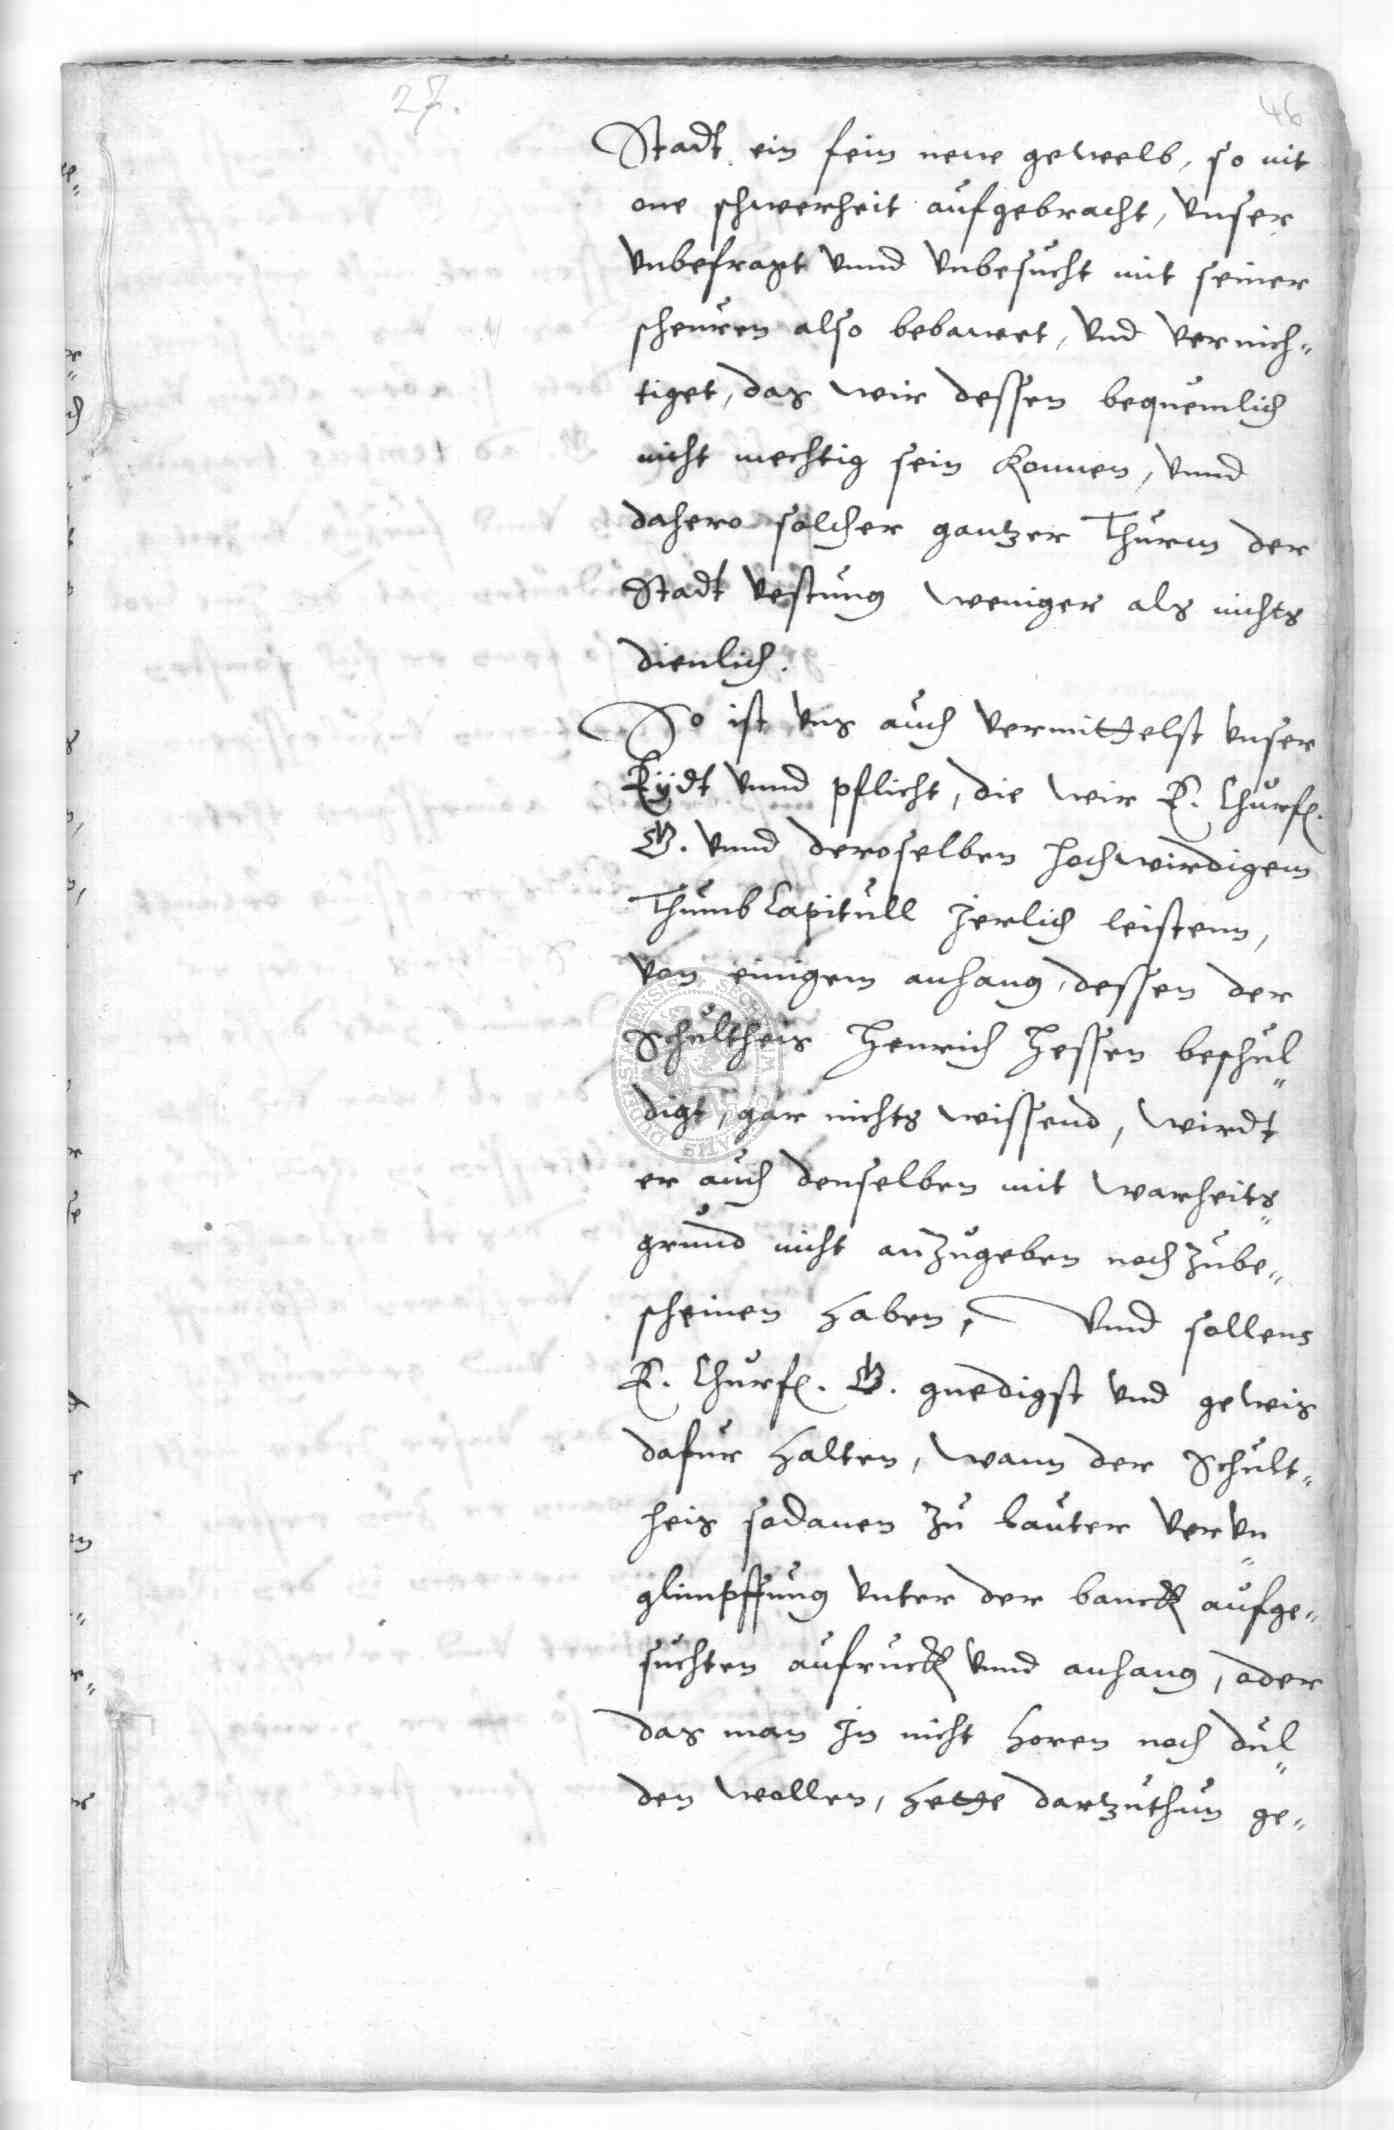 27.
46
Stadt ein fein newe gewelb, so nit
one schwerheit aufgebracht, vnser
vnbefragt vnnd vnbesucht mit seiner
schewren also bebawet, vnd vernich=
tiget, das wir dessen bequemlich
nicht mechtig sein konnen, vnnd
dahero solcher gantzer Thurm der
Stadt vestung weniger als nichts
dienlich.
So ist vns auch vermittelst vnser
Eydt vnnd pflicht, die wir E. Churf.
G. vnnd deroselben hochwirdigem
ThumbCapitull jerlich leistenn,
von einigem anhang, dessen der
Schultheis Henrich Hessen beschul=
digt, gar nichts wissend, wirdt
er auch denselben mit warheits=
grund nicht anzugeben noch zube=
scheinen haben, Vnnd sollens
E. Churf. G. gnedigst vnd gewis
dafur halten, wann der Schult=
heis sodanen zu lauter verun=
glimpffung vnter der banck aufge=
suchten aufruck vnnd anhang, oder
das man in nicht horen noch dul=
den wollen, hette dartzuthun ge=